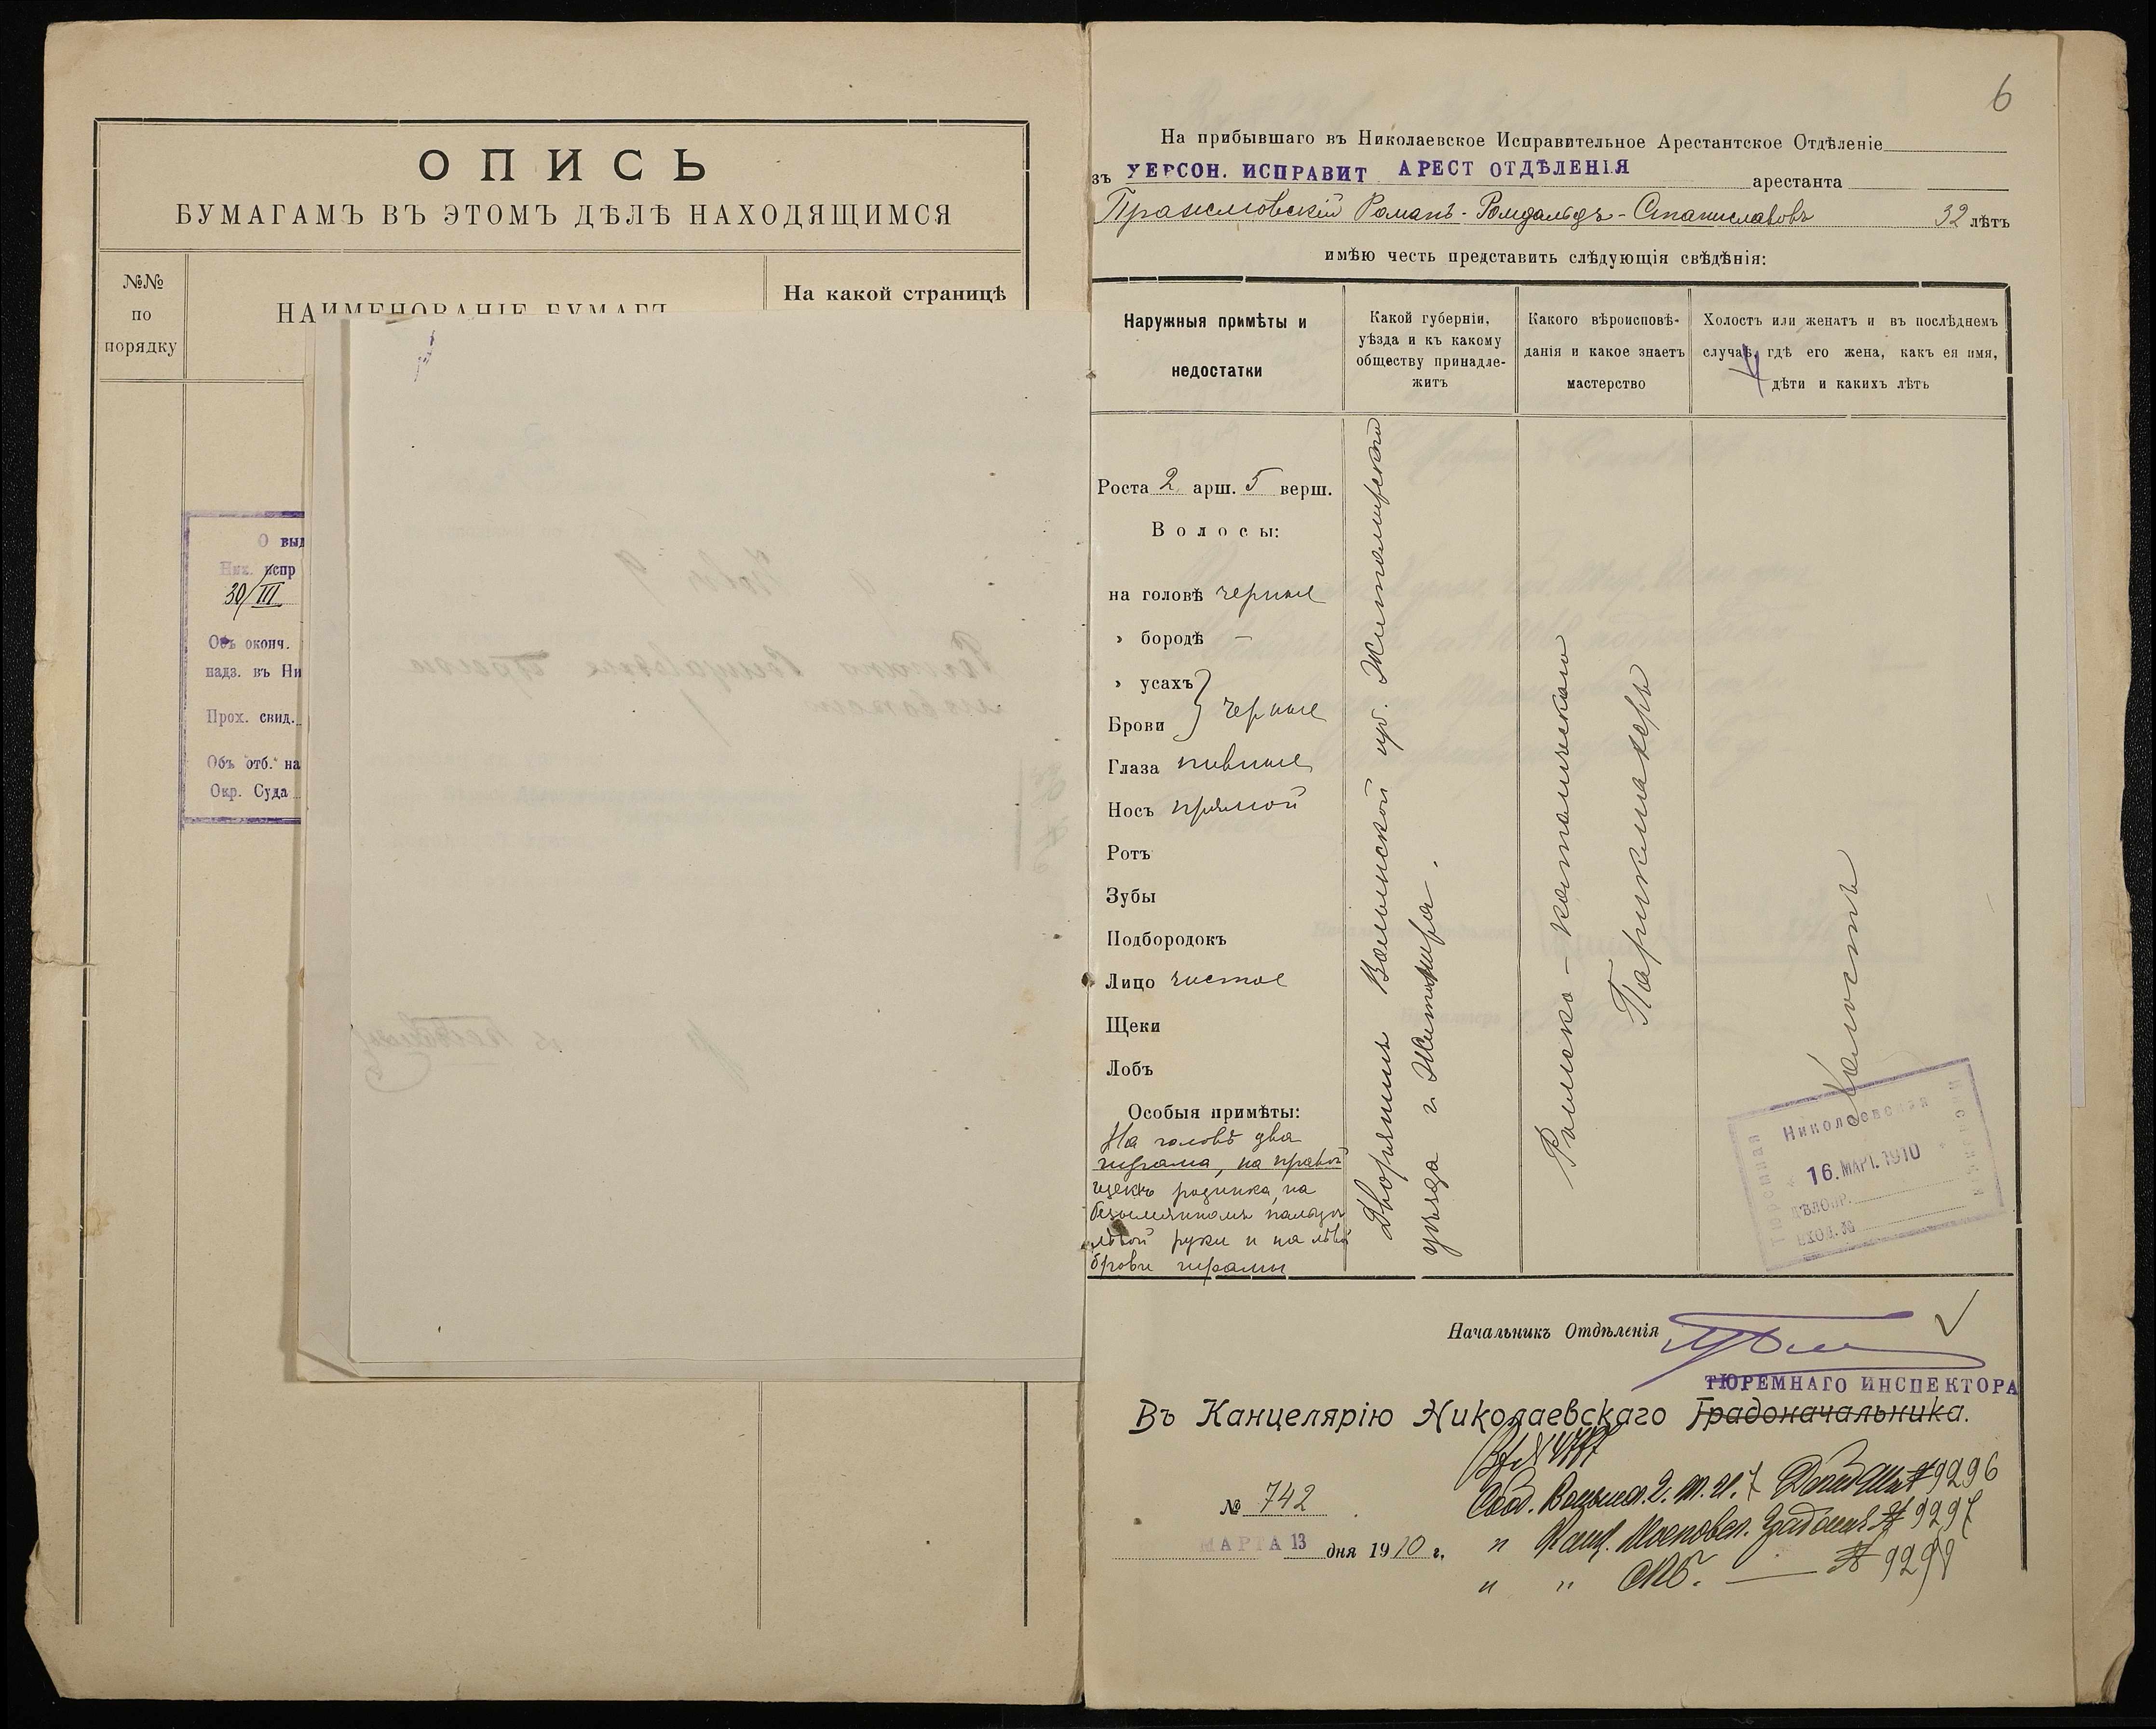 ОПИСЬ
БУМАГАМЪ ВЪ ЭТОМЪ ДѢЛѢ НАХОДЯЩИМСЯ
№№
по
порядку
НАИМЕНОВАНІЕ БУМАГЪ
На какой страницѣ
О выд
Ник. испр
30/III
Объ оконч.
надз. въ Ни
Прох. свид.
Объ отб. на
Окр. Суда
6
На прибывшаго въ Николаевское Исправительное Арестантское Отдѣленіе
зъ ХЕРСОН. ИСПРАВИТ АРЕСТ ОТДѢЛЕНІЯ арестанта
Романъ-Ромуальдъ-Станиславовъ 32 лѣтъ
имѣю честь представить слѣдующія свѣдѣнія:
Наружныя примѣты и
недостатки
Какой губерніи,
уѣзда и къ какому
обществу принадле-
житъ
Какого вѣроисповѣ-
данія и какое знаетъ
мастерство
Холостъ или женатъ и въ послѣднемъ
случаѣ, гдѣ его жена, какъ ея имя,
дѣти и какихъ лѣтъ
Роста 2 арш. 5 верш.
Волосы:
на головѣ черные
» бородѣ —
» усахъ
Брови } черные
Глаза
Носъ прямой
Ротъ
Зубы
Подбородокъ
Лицо чистое
Щеки
Лобъ
Особыя примѣты:
На головѣ два
шрама, на правой
щекѣ родинка, на
безымянномъ пальцѣ
лѣвой руки и на лѣвой
брови шрамы
Дворянинъ Волынской губ. Житомірскаго
уѣзда г. Житоміра.
Римско-католическаго
Парикмахеръ
Холостъ
Николаевская
Тюремная
Инспекція
16. МАРТ. 1910
ДѢЛОПР.
ВХОД. №
Начальникъ Отдѣленія
ТЮРЕМНАГО ИНСПЕКТОРА
Въ Канцелярію Николаевскаго Градоначальника.
№ 742
МАРТА 13 дня 1910 г.
№ 9296
" Канц. Московск. Градонач. № 9297
" " СПБ. — № 9298